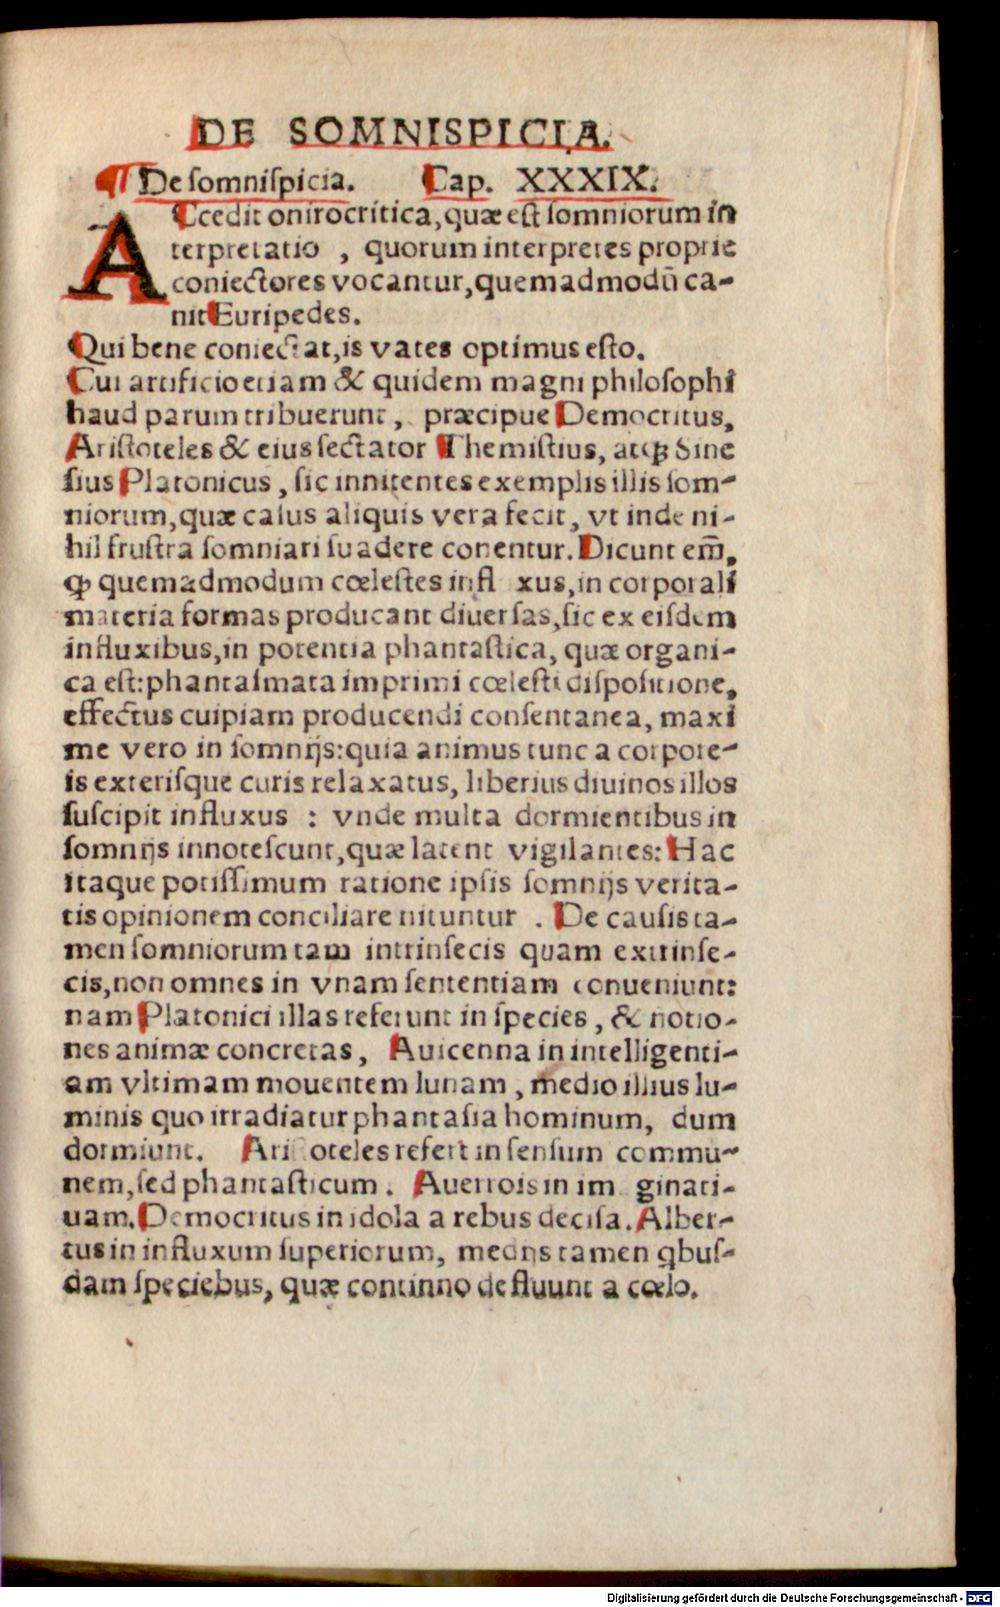 DE SOMNISPICIA.
¶ De somnispicia. Cap. XXXIX.
ACcedit onirocritica, quæ est somniorum in
terpretatio , quorum interpretes proprie
coniectores vocantur, quemadmodū ca-
nit Euripedes.
Qui bene coniectat, is vates optimus esto.
Cui artificio etiam & quidem magni philosophi
haud parum tribuerunt, præcipue Democritus,
Aristoteles & eius sectator Themistius, atqꝫ Sine
sius Platonicus, sic innitentes exemplis illis som-
niorum, quæ casus aliquis vera fecit, vt inde ni-
hil frustra somniari suadere conentur. Dicunt em̄,
ꝙ quemadmodum cœlestes infl xus, in corporali
materia formas producant diuersas, sic ex eisdem
influxibus, in potentia phantastica, quæ organi-
ca est: phantasmata imprimi cœlesti dispositione,
effectus cuipiam producendi consentanea, maxi
me vero in somnijs: quia animus tunc a corpore-
is exterisque curis relaxatus, liberius diuinos illos
suscipit influxus : vnde multa dormientibus in
somnijs innotescunt, quæ latent vigilantes: Hac
itaque potissimum ratione ipsis somnijs verita-
tis opinionem conciliare nituntur . De causis ta-
men somniorum tam intrinsecis quam extrinse-
cis, non omnes in vnam sententiam conueniunt:
nam Platonici illas referunt in species, & notio-
nes animæ concretas, Auicenna in intelligenti-
am vltimam mouentem lunam, medio illius lu-
minis quo irradiatur phantasia hominum, dum
dormiunt. Ari oteles refert in sensum commu-
nem, sed phantasticum. Auerrois in im ginati-
uam. Democritus in idola a rebus decisa. Alber-
tus in influxum superiorum, medijs tamen qbus-
dam speciebus, quæ continno defluunt a cœlo.
Digitalisierung gefördert durch die Deutsche Forschungsgemeinschaft - DFG